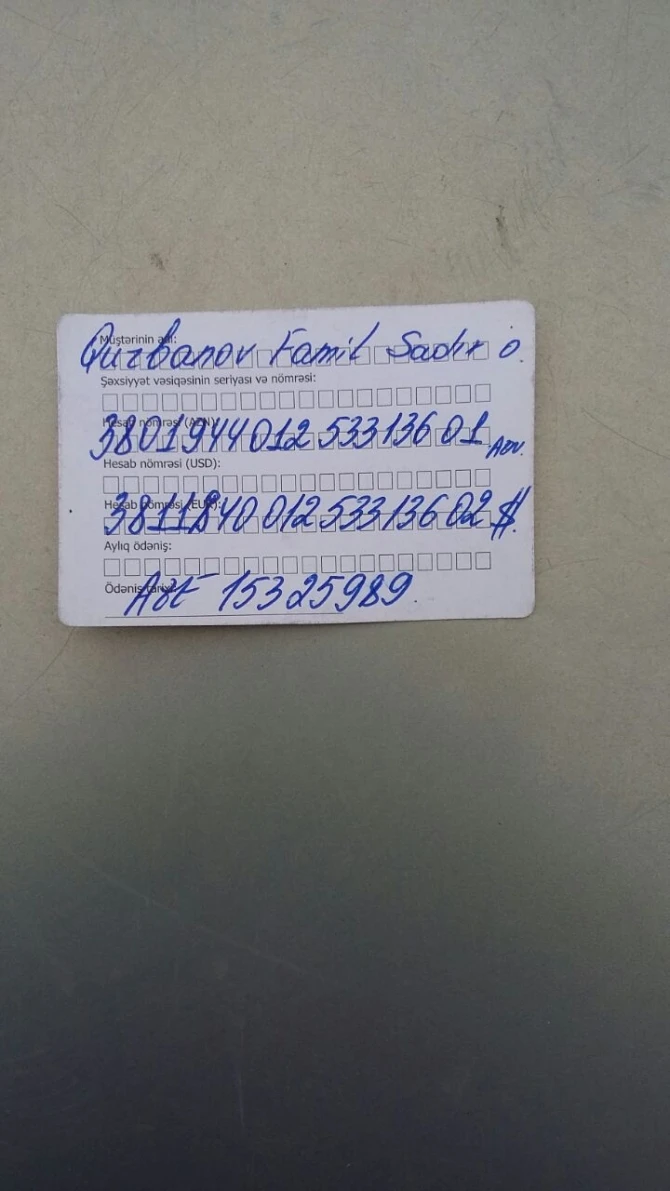 Müştərinin adı:
Qurbanov Famil Sadıx o.
Şəxsiyyət vəsiqəsinin seriyası və nömrəsi:
Hesab nömrəsi (AZN):
38019440125331360 1 AZN.
Hesab nömrəsi (USD):
Hesab nömrəsi (EUR):
38118400125331360 2 $.
Aylıq ödəniş:
Ödəniş tarixi:
15325989